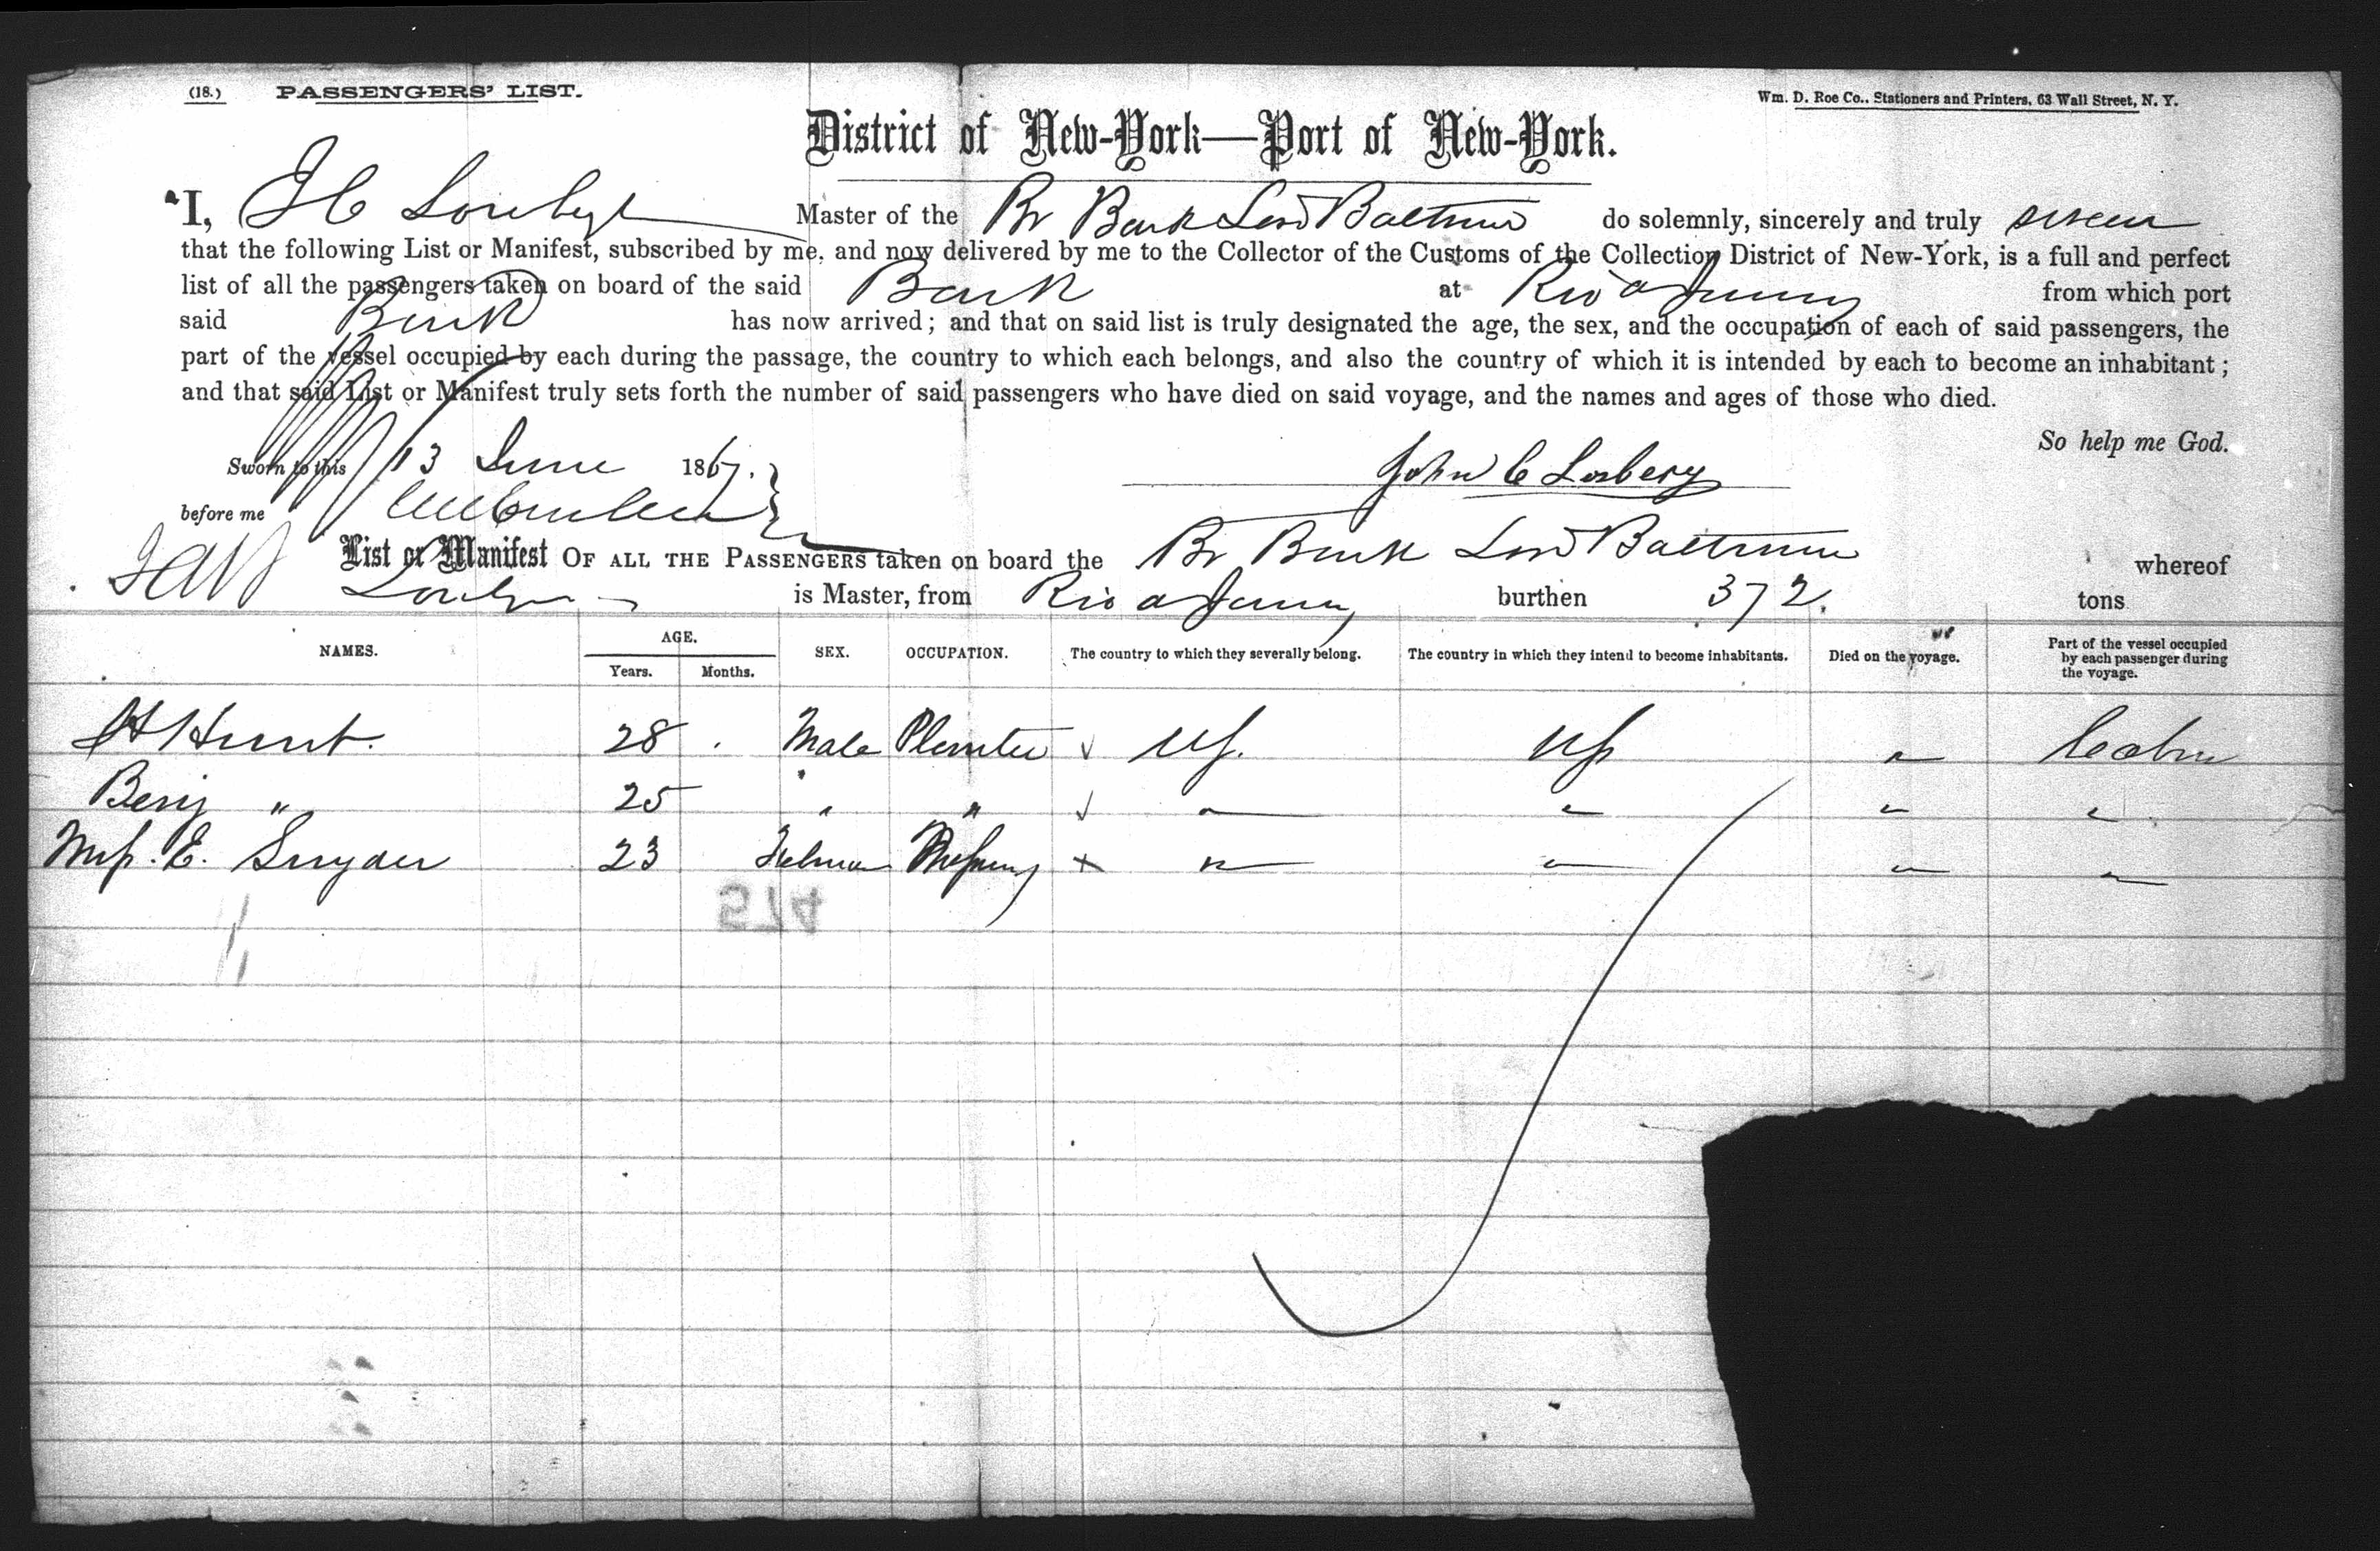 (18.) PASSENGERS' LIST.
Wm. D. Roe Co., Stationers and Printers, 63 Wall Street, N. Y.
District of New-York—Port of New-York.
I, J C Master of the Br Bark Lord Baltimore do solemnly, sincerely and truly swear
that the following List or Manifest, subscribed by me, and now delivered by me to the Collector of the Customs of the Collection District of New-York, is a full and perfect
list of all the passengers taken on board of the said Bark at Rio from which port
said Bark has now arrived; and that on said list is truly designated the age, the sex, and the occupation of each of said passengers, the
part of the vessel occupied by each during the passage, the country to which each belongs, and also the country of which it is intended by each to become an inhabitant;
and that said List or Manifest truly sets forth the number of said passengers who have died on said voyage, and the names and ages of those who died.
So help me God.
Sworn to this 13 June 1867. John C Losbery
before me
List or Manifest OF ALL THE PASSENGERS taken on board the Br Bark Lord Baltimore whereof
is Master, from Rio burthen 372. tons
NAMES. AGE. Years. Months. SEX. OCCUPATION. The country to which they severally belong. The country in which they intend to become inhabitants. Died on the voyage. Part of the vessel occupied by each passenger during the voyage.
H Hunt. 28 Male Planter US. US " Cabin
Benj " 25 " " " " " "
E. Snyder 23 " " " "
574